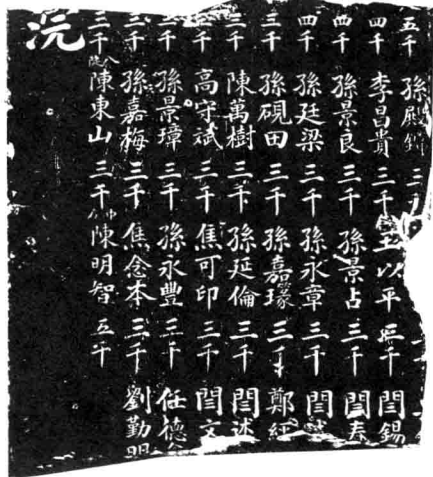 五千 孫殿 三千
四千 李昌貴 三千 王以平 三千 閆錫
四千 孫景良 三千 孫景占 三千 閆
四千 孫廷梁 三千 孫永章 三千 閆
三千 孫硯田 三千 孫嘉 三千 鄭
三千 陳萬樹 三千 孫延倫 三千 閆述
三千 高守斌 三千 焦可印 三千 閆文
三千 孫景璋 三千 孫永豐 三千 任德
三千 孫嘉梅 三千 焦念本 三千 劉勤明
三千 陳東山 三千 陳明智 五千
沅